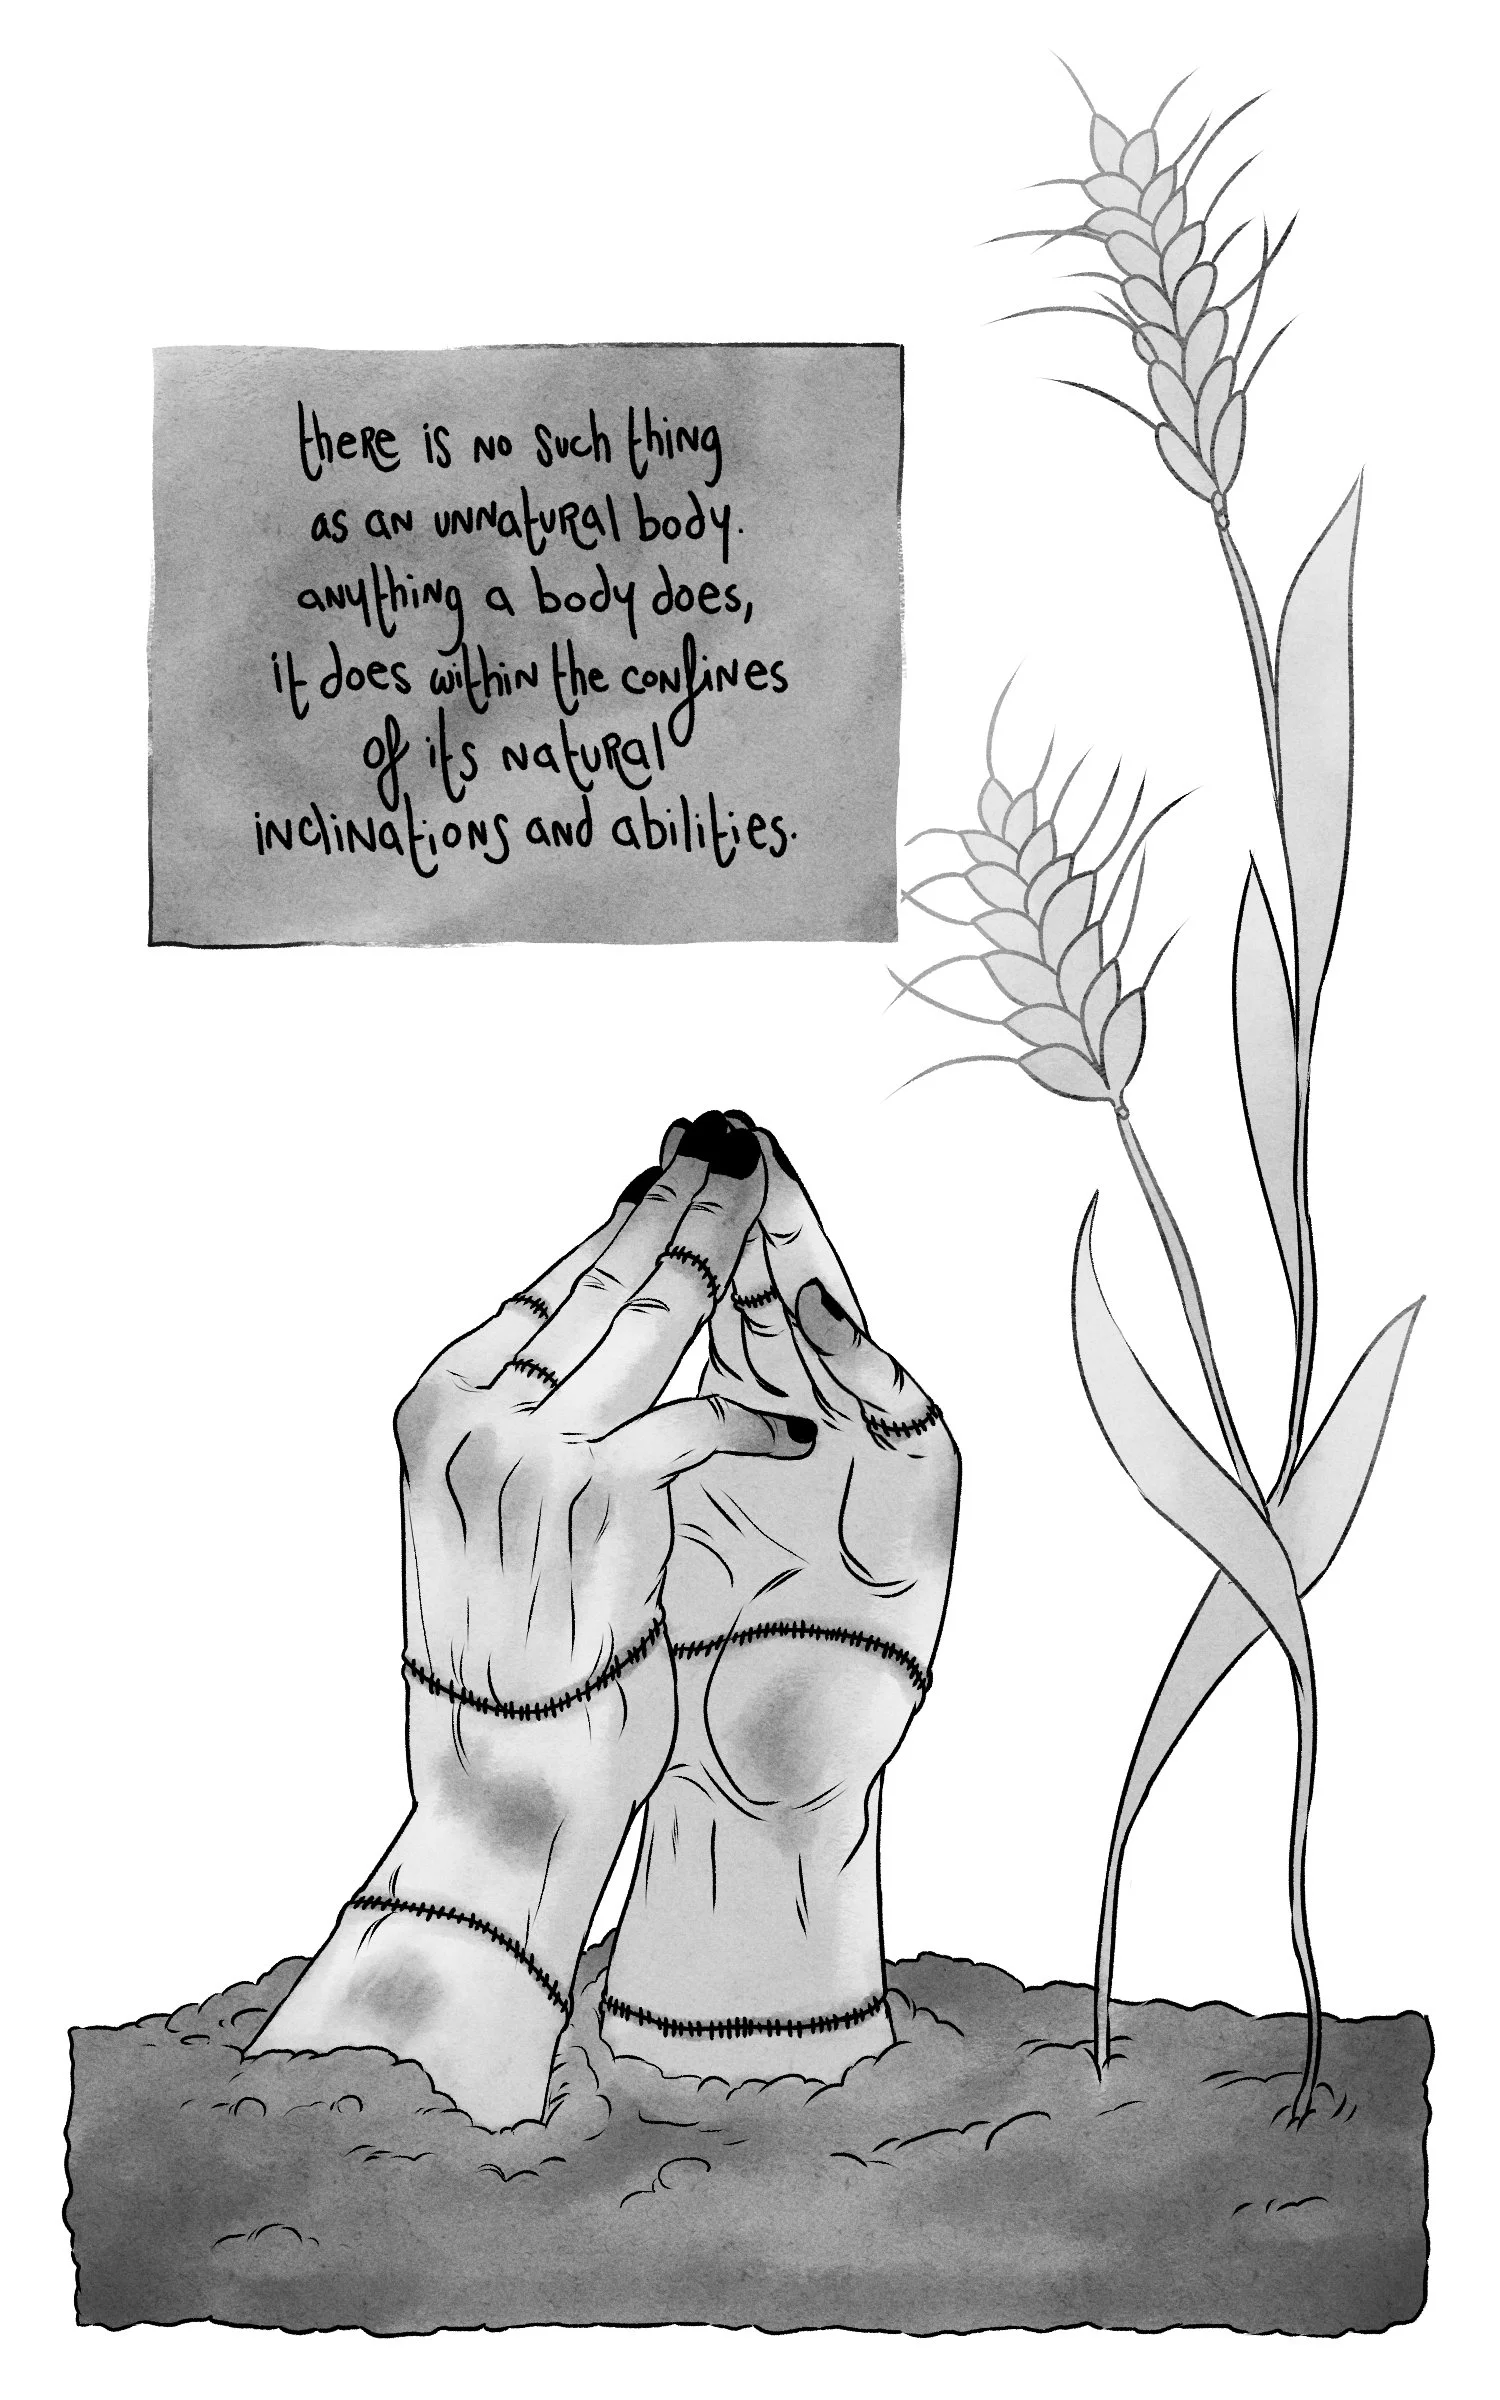 there is no such thing
as an unnatural body.
anything a body does,
it does within the confines
of its natural
inclinations and abilities.